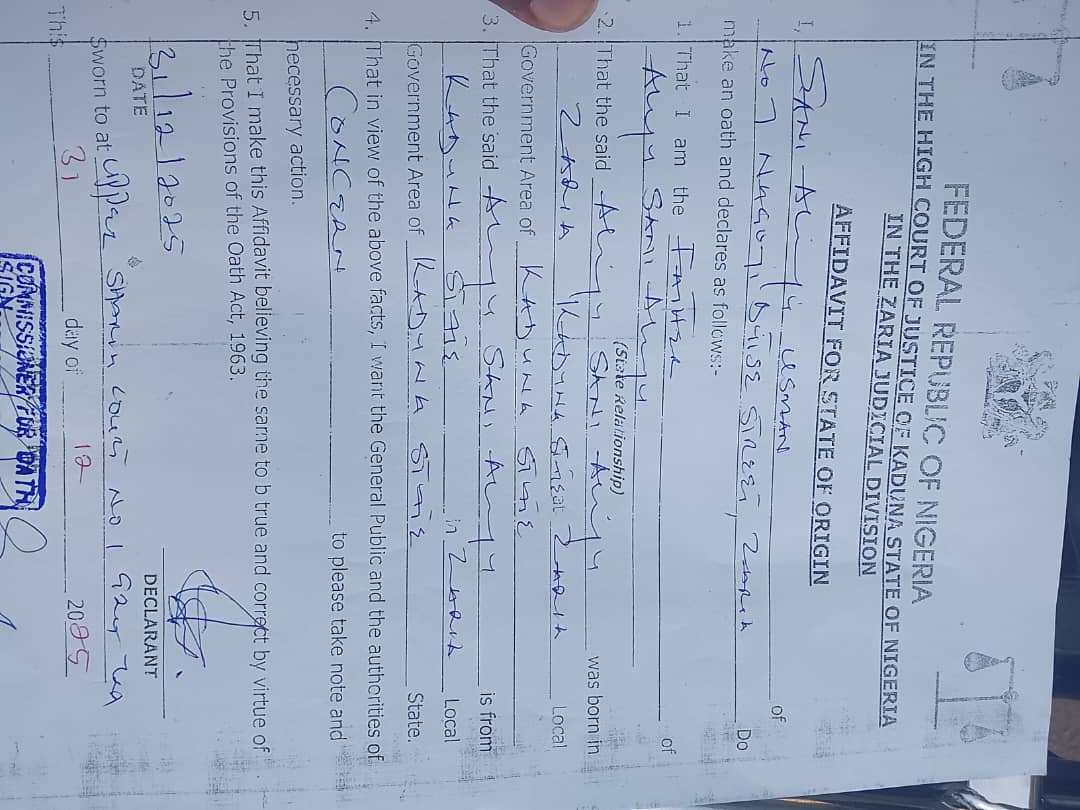 FEDERAL REPUBLIC OF NIGERIA
IN THE HIGH COURT OF JUSTICE OF KADUNA STATE OF NIGERIA
IN THE ZARIA JUDICIAL DIVISION
AFFIDAVIT FOR STATE OF ORIGIN
I, SANI Aliyu USMAN of
No 7 Nagoyi House Street, Zaria Do
make an oath and declares as follows:-
1. That I am the FATHER of
Aliyu SANI Aliyu
(State Relationship)
2. That the said Aliyu SANI Aliyu was born in
ZARIA KADUNA Zaria Local
Government Area of KADUNA State
3. That the said Aliyu SANI Aliyu is from
KADUNA State in ZARIA Local
Government Area of KADUNA State State.
4. That in view of the above facts, I want the General Public and the authorities of
CONCERN to please take note and
necessary action.
5. That I make this Affidavit believing the same to b true and correct by virtue of
the Provisions of the Oath Act, 1963.
31/12/2025
DATE DECLARANT
Sworn to at Upper Sharia Court No 1
This 31 day of 12 2025
COMMISSIONER FOR OATH
SIGN